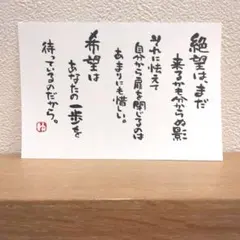 絶望は、まだ
来るかも分からぬ影
それに怯えて
自分から扉を閉じるのは
あまりにも惜しい。
希望は
あなたの一歩を
待っているのだから。